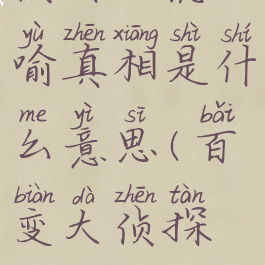 yù zhēn xiāng shì shí
喻真相是什
me yì sī bǎi
么意思(百
biàn dà zhēn tàn
变大侦探